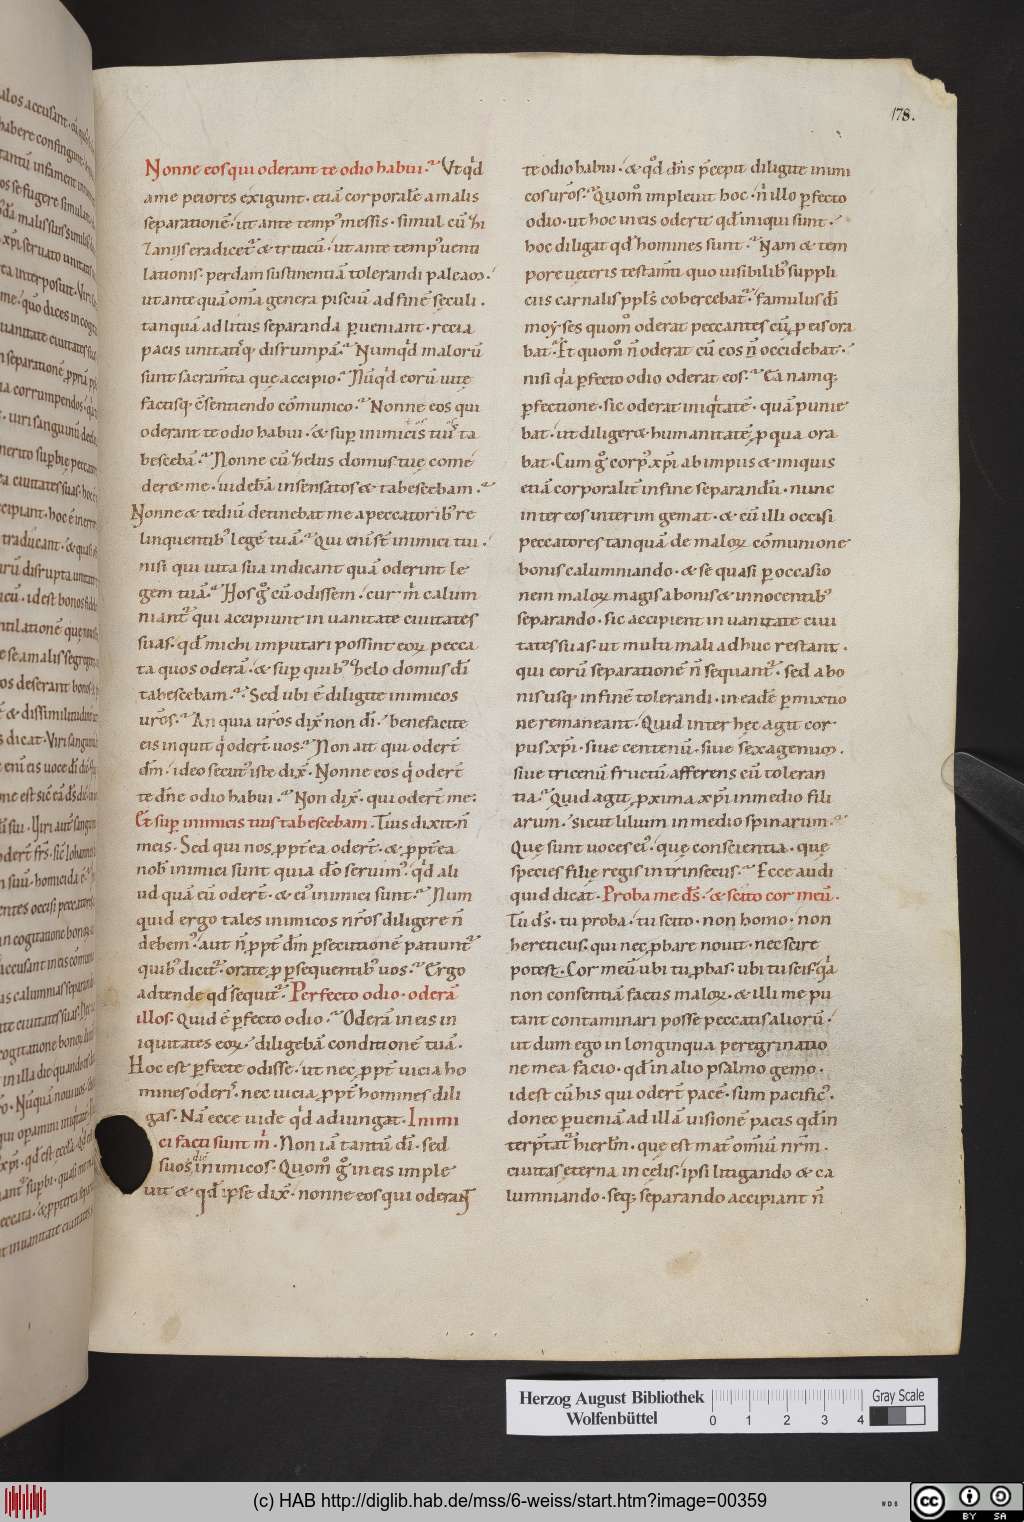 178.
Nonne eos qui oderant te odio habui. Vt qd
a me peiores exigunt. etiā corporalē a malis
separationē. ut ante temp᷒ messis. simul cū
zaniis eradicet᷑ & triticū. ut ante temp᷒ uenti
lationis. perdam sustinentiā tolerandi paleam.
ut ante quā om̄a genera pisciū ad finē seculi.
tanquā ad litus separanda ꝑueniant. recia
pacis unitatisq; disrumpā. Numqd maloru
sunt sacram̄ta que accipio. Nūqd eorū uitę
factisq; c̄sentiendo cōmunico. Nonne eos qui
oderant te odio habui. & suꝑ inimicis tuis ta
bescebā. Nonne cū zelus domus tuę come
der& me. uidebā insensatos & tabescebam.
Nonne & tediū detinebat me a peccatorib᷒ re
linquentib᷒ legē tuā. Qui eni s̄t inimici tui.
nisi qui uita sua indicant quā oderint le
gem tuā. Hos gͦ cū odissem. cur m̄ calum
niant᷑ qui accipiunt in uanitate ciuitates
suas. qd̄ michi imputari possint eoꝝ pecca
ta quos oderā. & suꝑ quib᷒ zelo domus dī
tabescebam. Sed ubi ē diligite inimicos
uros. An quia uros dix̄ non dī. benefacite
eis inquit q' odert̄ uos. Non ait qui odert̄
dm̄. ideo secut᷒ iste dix̄. Nonne eos q' odert̄
te dn̄e odio habui. Non dix̄. qui odert̄ me.
Et suꝑ inimicis tuis tabescebam. Tuis dixit n̄
meis. Sed qui nos ꝓpt̄ea odert̄. & ꝓpt̄ea
nob᷒ inimici sunt quia dō seruim᷒. qd ali
ud quā eū odert̄. & ei᷒ inimici sunt. Num
quid ergo tales inimicos nr̄os diligere n̄
debem᷒. aut n̄ ꝓpt̄ dm̄ ꝑsecutionē patiunt᷑
quib᷒ dicit᷑. orate ꝓ ꝑsequentib᷒ uos. Ergo
adtende qd̄ sequit᷑. Perfecto odio. oderā
illos. Quid ē ꝑfecto odio. Oderā in eis in
iquitates eoꝝ. diligebā conditionē tuā.
Hoc est ꝑfecte odisse. ut nec ꝓpt̄ uicia ho
mines oderis. nec uicia ꝓpt̄ homines dili
gas. Nā ecce uide qd adiungat. Inimi
ci facti sunt m̄. Non iā tantū dī. sed
suos inimicos. Quom̊ gͦ in eis imple
uit & qd̄ ipse dix̄. nonne eos qui oderant
te odio habui. & qd̄ dn̄s p̄cepit diligite inimi
cos uros. Quom̊ impleuit hoc. n' illo ꝑfecto
odio. ut hoc in eis oderit qd̄ iniqui sunt.
hoc diligat qd̄ homines sunt. Nam & tem
pore ueteris testam̄ti quo uisibilib᷒ suppli
ciis carnalis ppl̄s cohercebat᷑. famulus dī
moyses quom̊ oderat peccantes cū ꝓ eis ora
bat. Et quom̊ n̄ oderat cū eos n̄ occidebat.
nisi qa ꝑfecto odio oderat eos. Ea namq;
ꝑfectione. sic oderat iniqtatē. quā punie
bat. ut diliger& humanitatē ꝓ qua ora
bat. Cum gͦ corp᷒ xpī ab impiis & iniquis
etiā corporalit̄ in fine separandū. nunc
inter eos interim gemat. & cū illi occisi
peccatores tanquā de maloꝝ cōmunione
bonis calumniando. & se quasi ꝑ occasio
nem maloꝝ magis a bonis & innocentib᷒
separando. sic accipient in uanitate ciui
tates suas. ut multi mali adhuc restant.
qui eorū separationē n̄ sequant᷑. sed a bo
nis usq; in finē tolerandi. in eadē ꝑmixtio
ne remaneant. Quid inter hęc agit cor
pus xpī. siue centenū. siue sexagenum.
siue tricenū fructū afferens cū toleran
tia. Quid agit ꝓxima xpī in medio fili
arum. sicut lilium in medio spinarum.
Que sunt uoces ei᷒. que conscientia. quę
species filie regis intrinsecus. Ecce audi
quid dicat. Proba me ds̄. & scito cor meū.
Tu ds̄. tu proba. tu scito. non homo. non
hereticus. qui nec ꝓbare nouit. nec scire
potest. Cor meū ubi tu ꝓbas. ubi tu scis. qa
non consentiā factis maloꝝ. & illi me pu
tant contaminari posse peccatis aliorū.
ut dum ego in longinqua peregrinatio
ne mea facio. qd̄ in alio psalmo gemo.
id est cū his qui odert̄ pacē. sum pacific᷒.
donec ꝑueniā ad illā uisionē pacis qd̄ in
terp̄tat᷑ hierl̄m. que est mat̄ om̄iū nr̄m.
ciuitas eterna in celis. ipsi litigando & ca
lumniando. seq; separando accipiant n̄
Herzog August Bibliothek
Wolfenbüttel
0 1 2 3 4
Gray Scale
(c) HAB http://diglib.hab.de/mss/6-weiss/start.htm?image=00359
cc BY SA